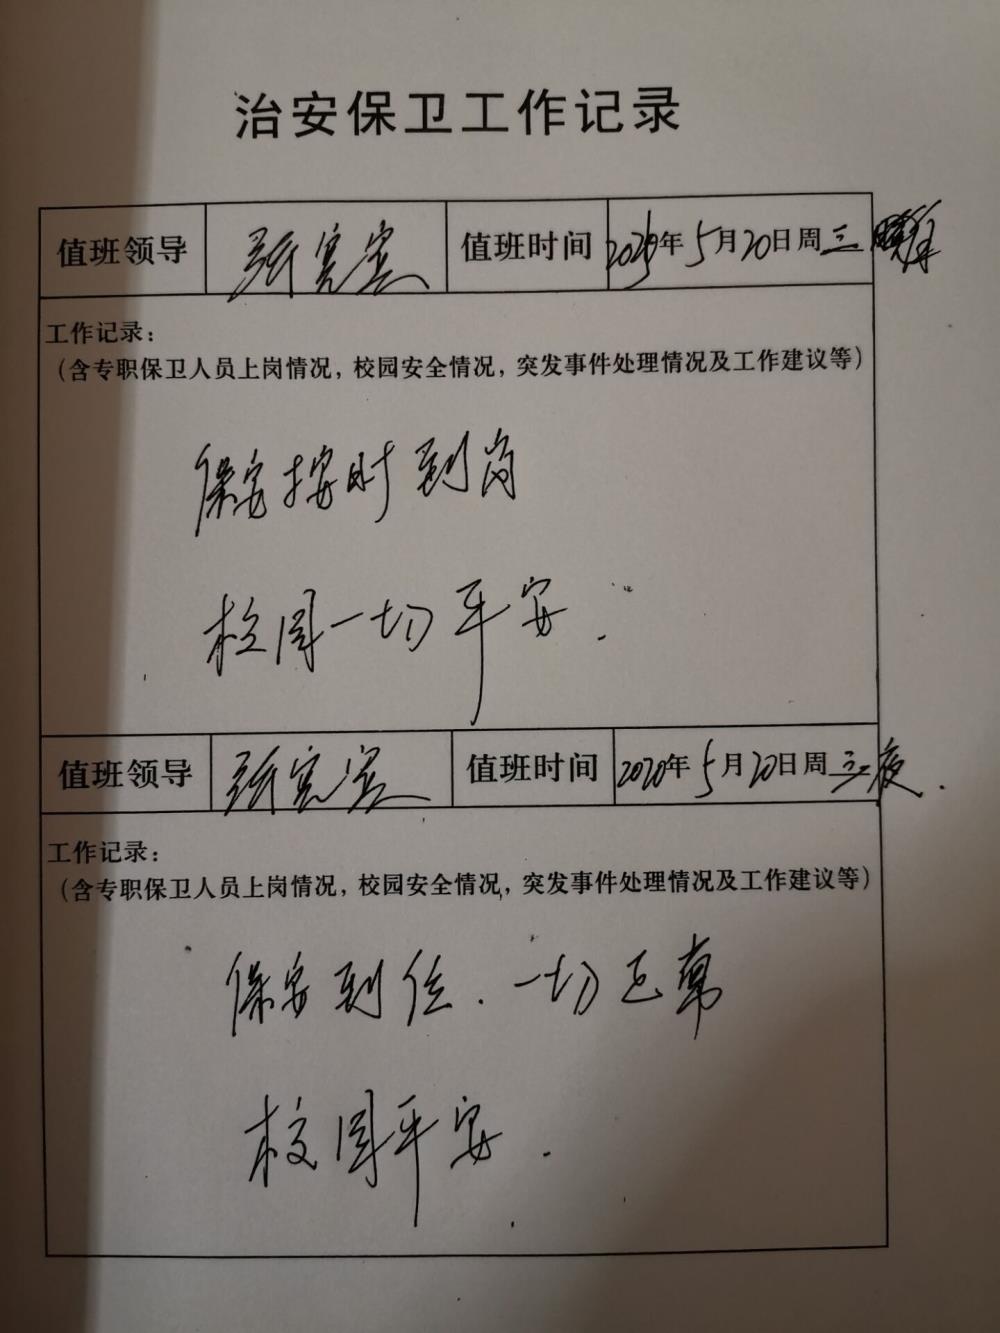 治安保卫工作记录
值班领导 张宪宾 值班时间 2020年5月20日周三
工作记录：
（含专职保卫人员上岗情况，校园安全情况，突发事件处理情况及工作建议等）
保安按时到岗
校园一切平安.
值班领导 张宪宾 值班时间 2020年5月20日周三夜.
工作记录：
（含专职保卫人员上岗情况，校园安全情况，突发事件处理情况及工作建议等）
保安到位.一切正常
校园平安.